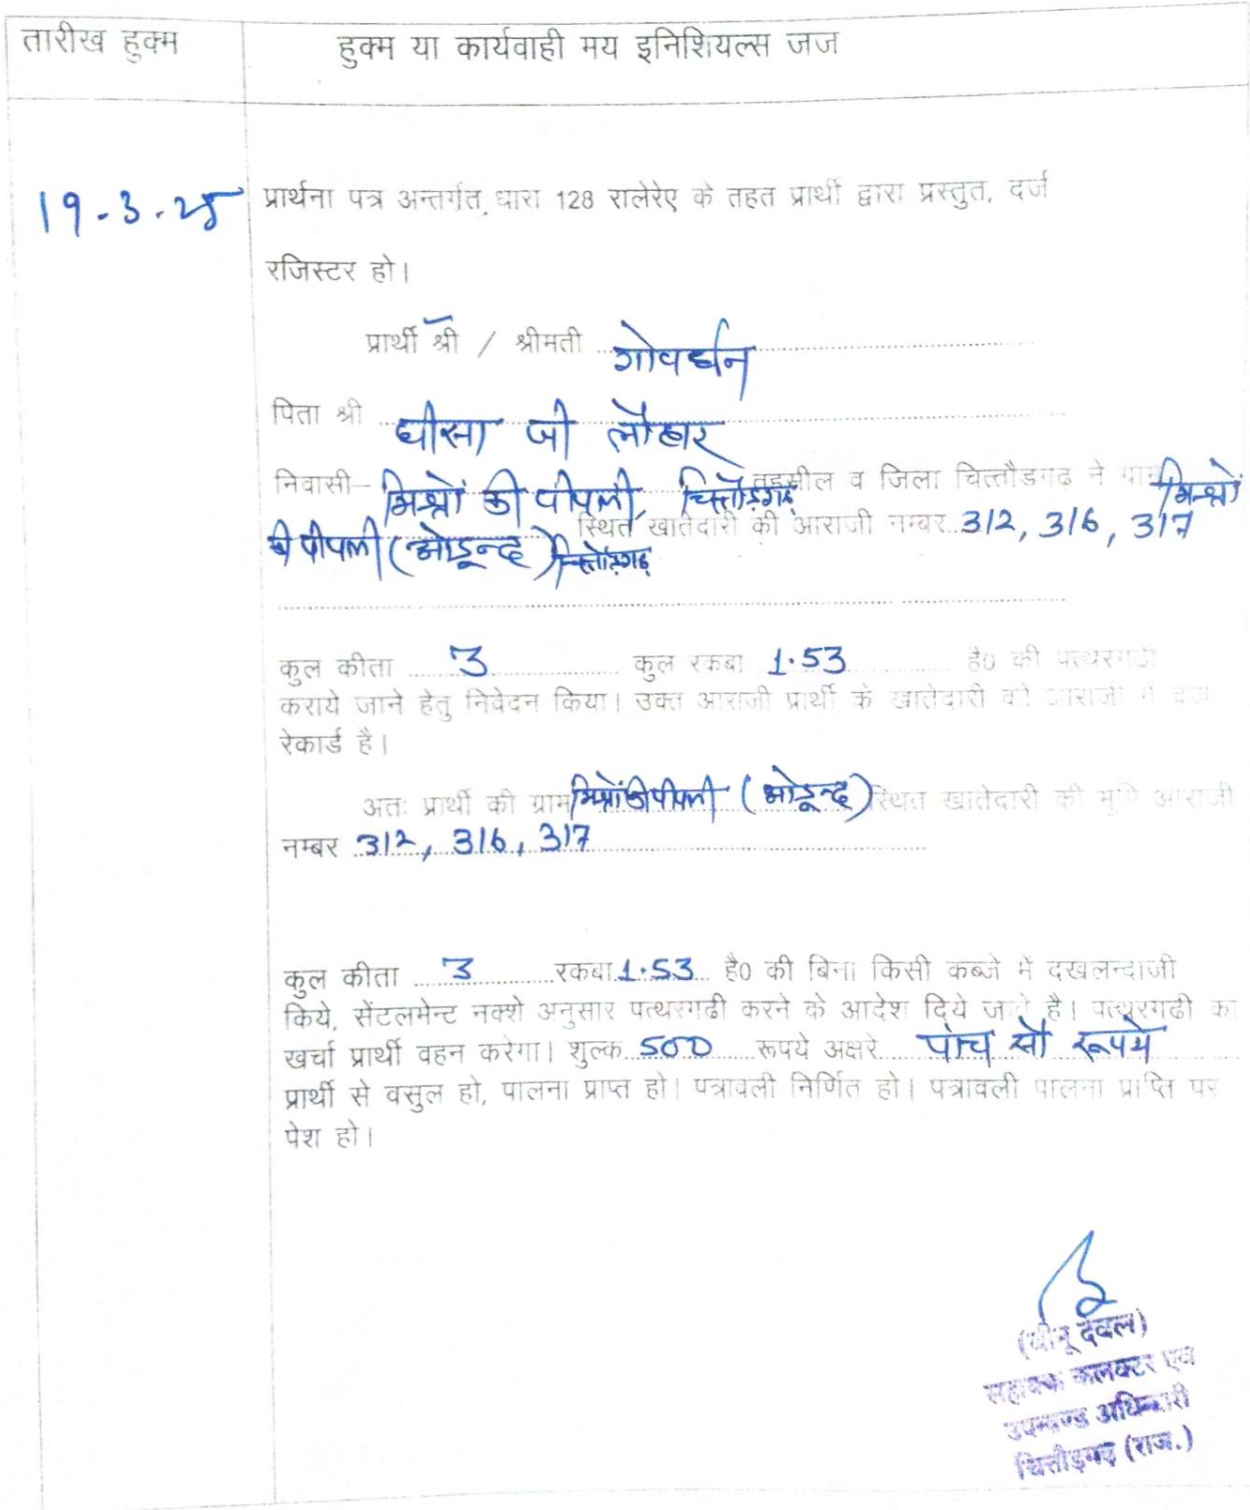 तारीख हुक्म
हुक्म या कार्यवाही मय इनिशियल्स जज
19-3-25
प्रार्थना पत्र अन्तर्गत धारा 128 रालेरेए के तहत प्रार्थी द्वारा प्रस्तुत, दर्ज
रजिस्टर हो।
प्रार्थी श्री / श्रीमती गोवर्धन
पिता श्री घीसा जी लौहार
निवासी- मिश्रों की पीपली, चित्तौड़गढ़ तहसील व जिला चित्तौडगढ ने ग्राम मिश्रों
की पीपली (ओडून्द) चित्तौड़गढ़ स्थित खातेदारी की आराजी नम्बर 312, 316, 317
कुल कीता 3 कुल रकबा 1.53 है0 की पत्थरगढी
कराये जाने हेतु निवेदन किया। उक्त आराजी प्रार्थी के खातेदारी की आराजी में दर्ज
रेकार्ड है।
अतः प्रार्थी की ग्राम मिश्रों की पीपली (ओडून्द) स्थित खातेदारी की भूमि आराजी
नम्बर 312, 316, 317
कुल कीता 3 रकबा 1.53 है0 की बिना किसी कब्जे में दखलन्दाजी
किये, सेंटलमेन्ट नक्शे अनुसार पत्थरगढी करने के आदेश दिये जाते है। पत्थरगढी का
खर्चा प्रार्थी वहन करेगा। शुल्क 500 रूपये अक्षरे पांच सौ रूपये
प्रार्थी से वसुल हो, पालना प्राप्त हो। पत्रावली निर्णित हो। पत्रावली पालना प्राप्ति पर
पेश हो।
देवल)
सहायक कलक्टर एवं
उपखण्ड अधिकारी
चित्तौड़गढ़ (राज.)